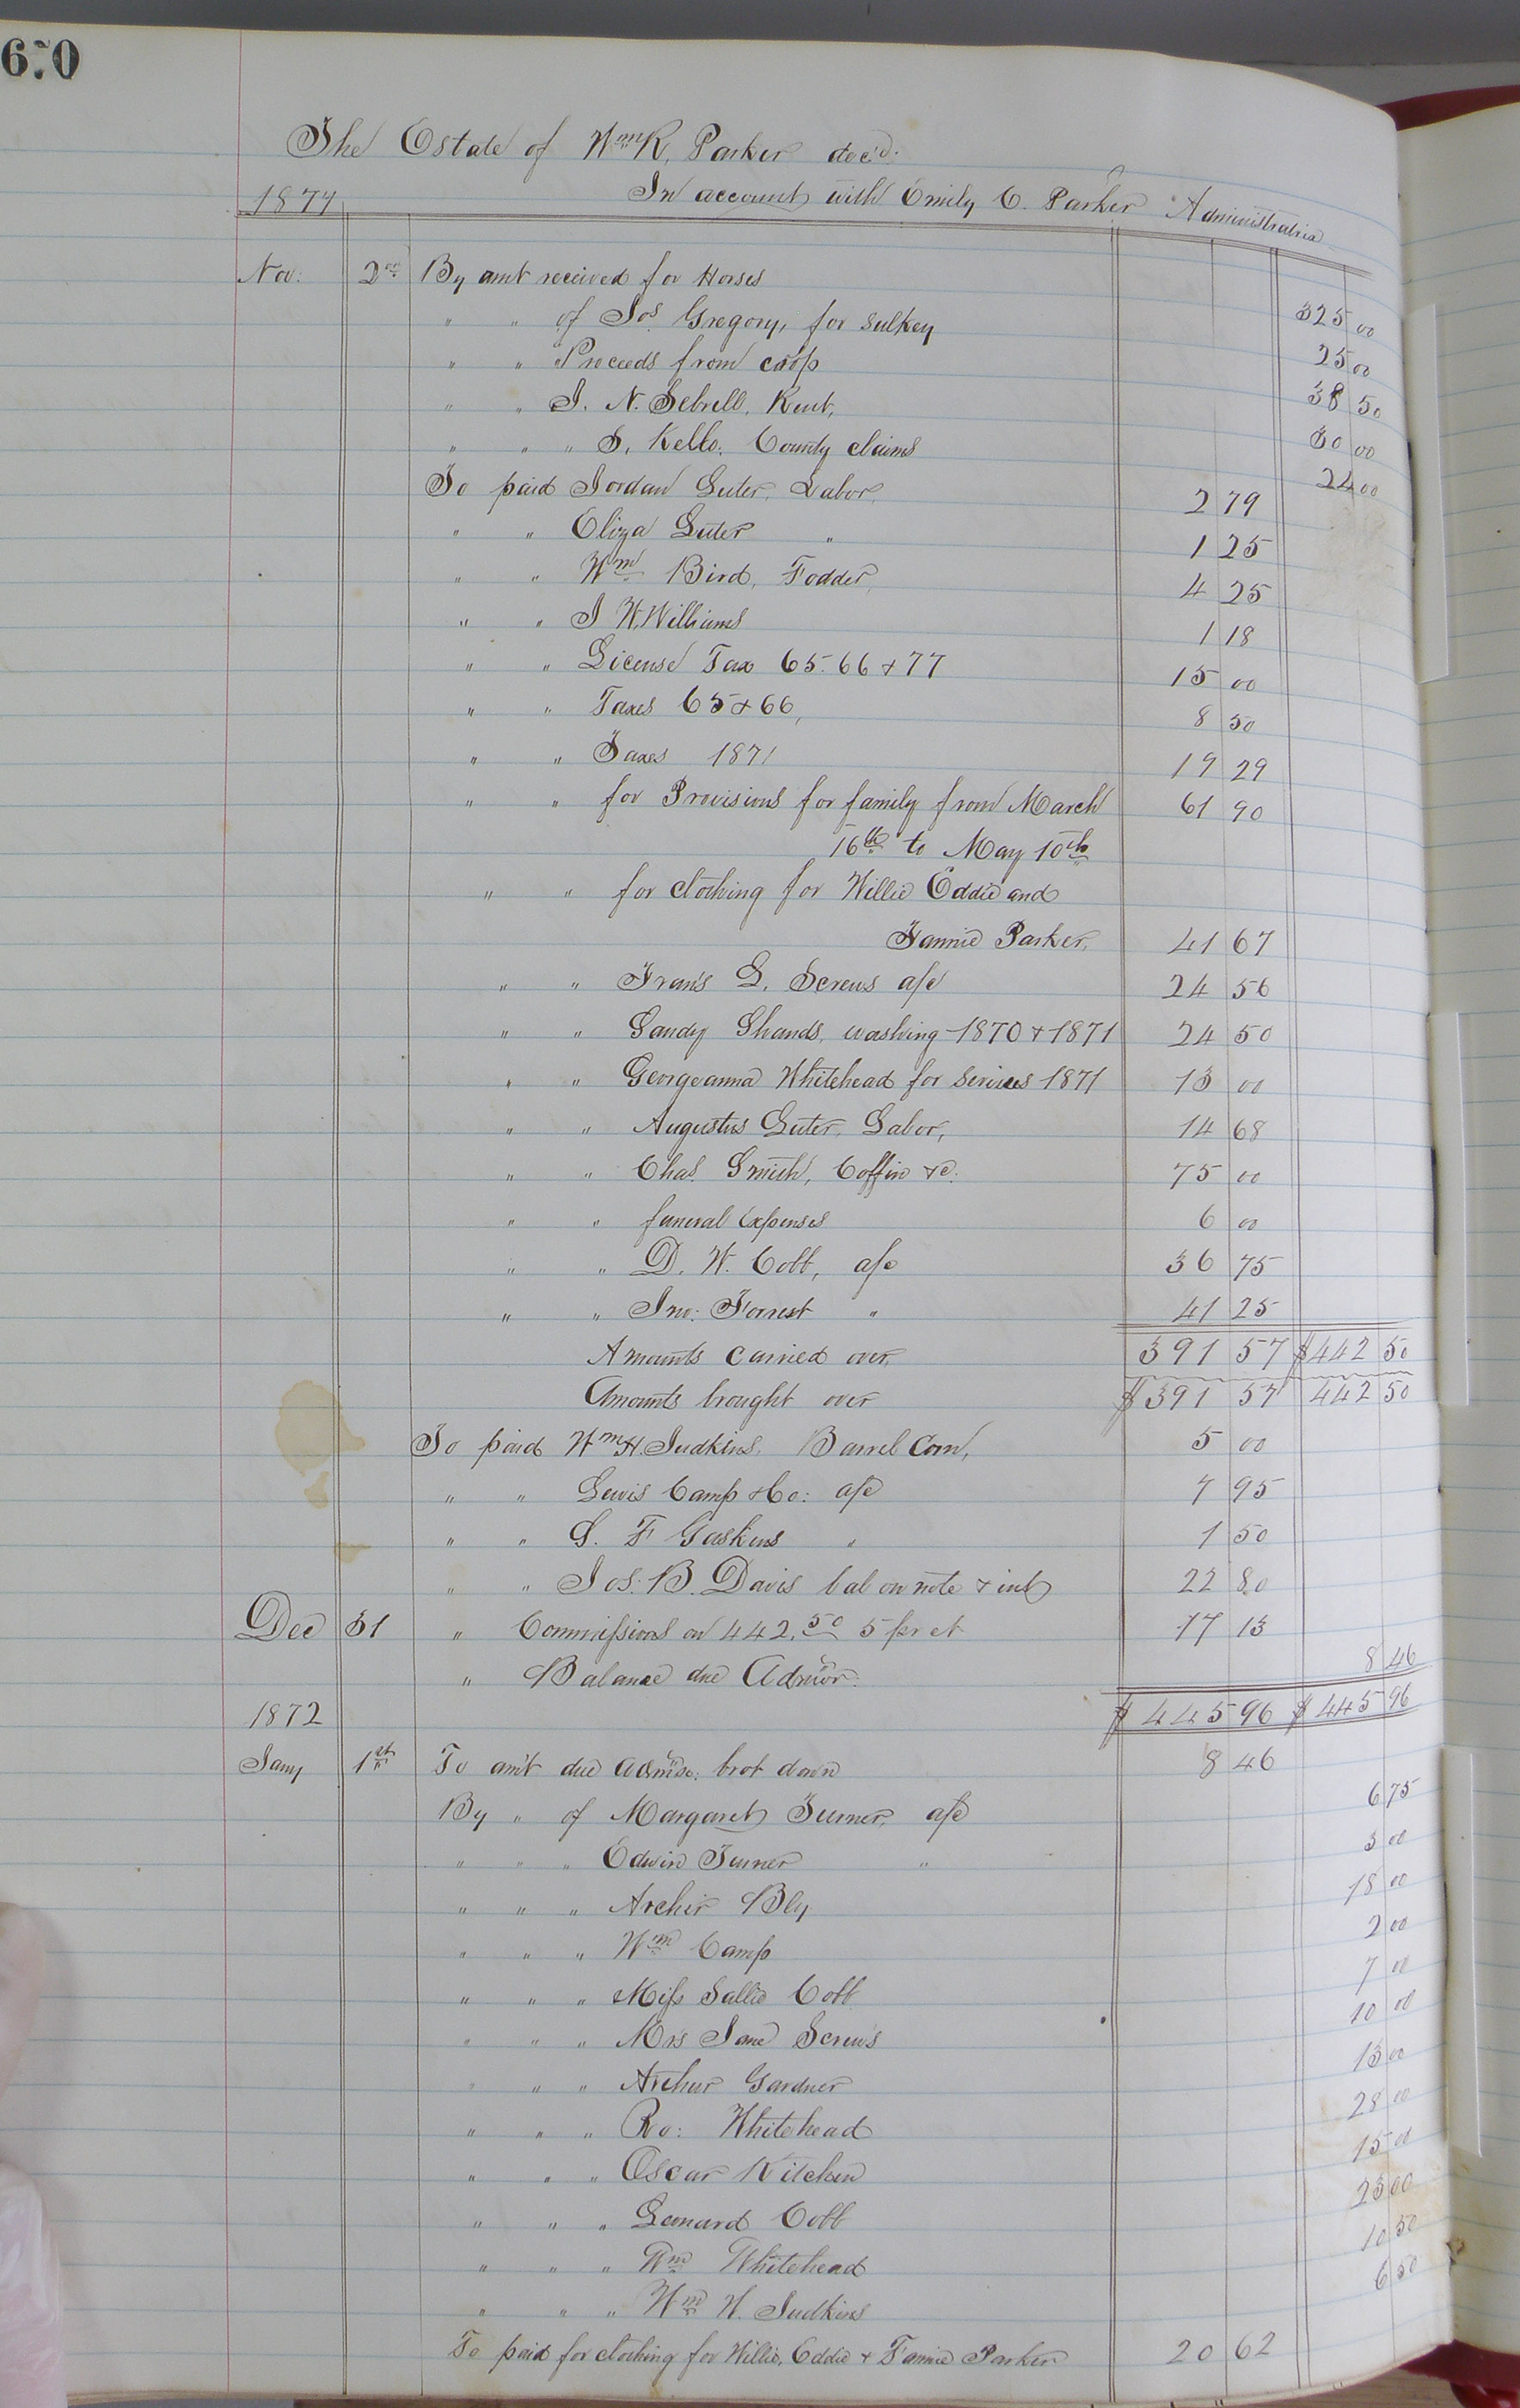 670
The Estate of Wm R. Parker dec'd.
1871 In account with Emily C. Parker Administratrix
Nov: 2nd By amt received for Horses 325 00
" " of Jos. Gregory, for sulkey 25 00
" " " Proceeds from crop 38 50
" " J. N. Sebrell, Rent, 30 00
" " " S. Kello, County claims 24 00
To paid Jordan Luter, Labor, 2 79
" " Eliza Luter " 1 25
" " Wm Bird, Fodder, 4 25
" " J W. Williams 1 18
" " License Tax 65. 66 & 77 15 00
" " Taxes 65 & 66, 8 50
" " Taxes 1871 19 29
" " for Provisions for family from March 61 90
16th to May 10th
" " for clothing for Willie Eddie and
Fannie Parker, 41 67
" " Frans L. Screws a/c 24 56
" " Sandy Shands, washing 1870 & 1871 24 50
" " Georgeanna Whitehead for services 1871 13 00
" " Augustus Luter, Labor, 14 68
" " Chas. Smith, Coffin &c. 75 00
" " funeral Expenses 6 00
" " D. W. Cobb, a/c 36 75
" " Jno: Forrest " 41 25
Amounts carried over, 391 57 $442 50
Amounts brought over $391 57 442 50
To paid Wm H. Judkins, Barrel Corn, 5 00
" " Lewis Camp & Co: a/c 7 95
" " S. F Gaskins " 1 50
" " Jos. B. Davis bal on note & int 22 80
Dec 31 " Commissions on 442.50 5 pr ct 17 13
" Balance due Admor. 8 46
1872 $445 96 $445 96
Jany 1st To amt due Admx. brot down 8 46
By " of Margaret Turner, a/c 6 75
" " " Edwin Turner " 3 00
" " " Archir Bly 18 00
" " " Wm Camp 2 00
" " " Miss Sallie Cobb 7 00
" " " Mrs Jane Screws 10 00
" " " Archer Gardner 13 00
" " " Ro: Whitehead 28 00
" " " Oscar Kitchen 15 00
" " " Leonard Cobb 23 00
" " " Wm Whitehead 10 50
" " " Wm H. Judkins 6 50
To paid for clothing for Willie, Eddie & Fannie Parker 20 62